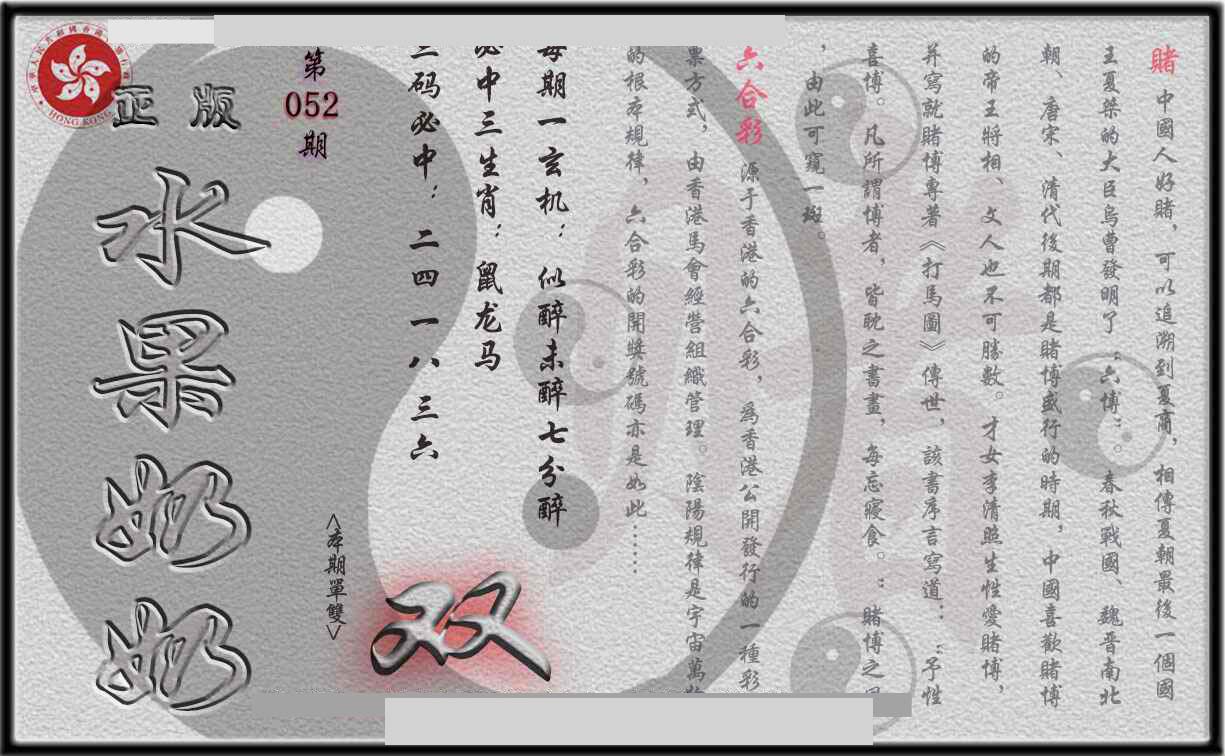 賭 中國人好賭，可以追溯到夏商，相傳夏朝最後一個國
王夏桀的大臣烏曹發明了“六博”。春秋戰國、魏晉南北
朝、唐宋、清代後期都是賭博盛行的時期，中國喜歡賭博
的帝王將相、文人也不可勝數。才女李清照生性愛賭博，
并寫就賭博專著《打馬圖》傳世，該書序言寫道：“予性
喜博。凡所謂博者，皆耽之晝晝，每忘寢食。”賭博之風
，由此可窺一斑。
六合彩 源于香港的六合彩，為香港公開發行的一種彩
票方式，由香港馬會經營組織管理。陰陽規律是宇宙萬物
的根本規律，六合彩的開獎號碼亦是如此……
每期一玄机：似醉未醉七分醉
必中三生肖：鼠龙马
三码必中：二四 一八 三六
第
052
期
<本期單雙>
双
正版
水果奶奶
HONG KONG